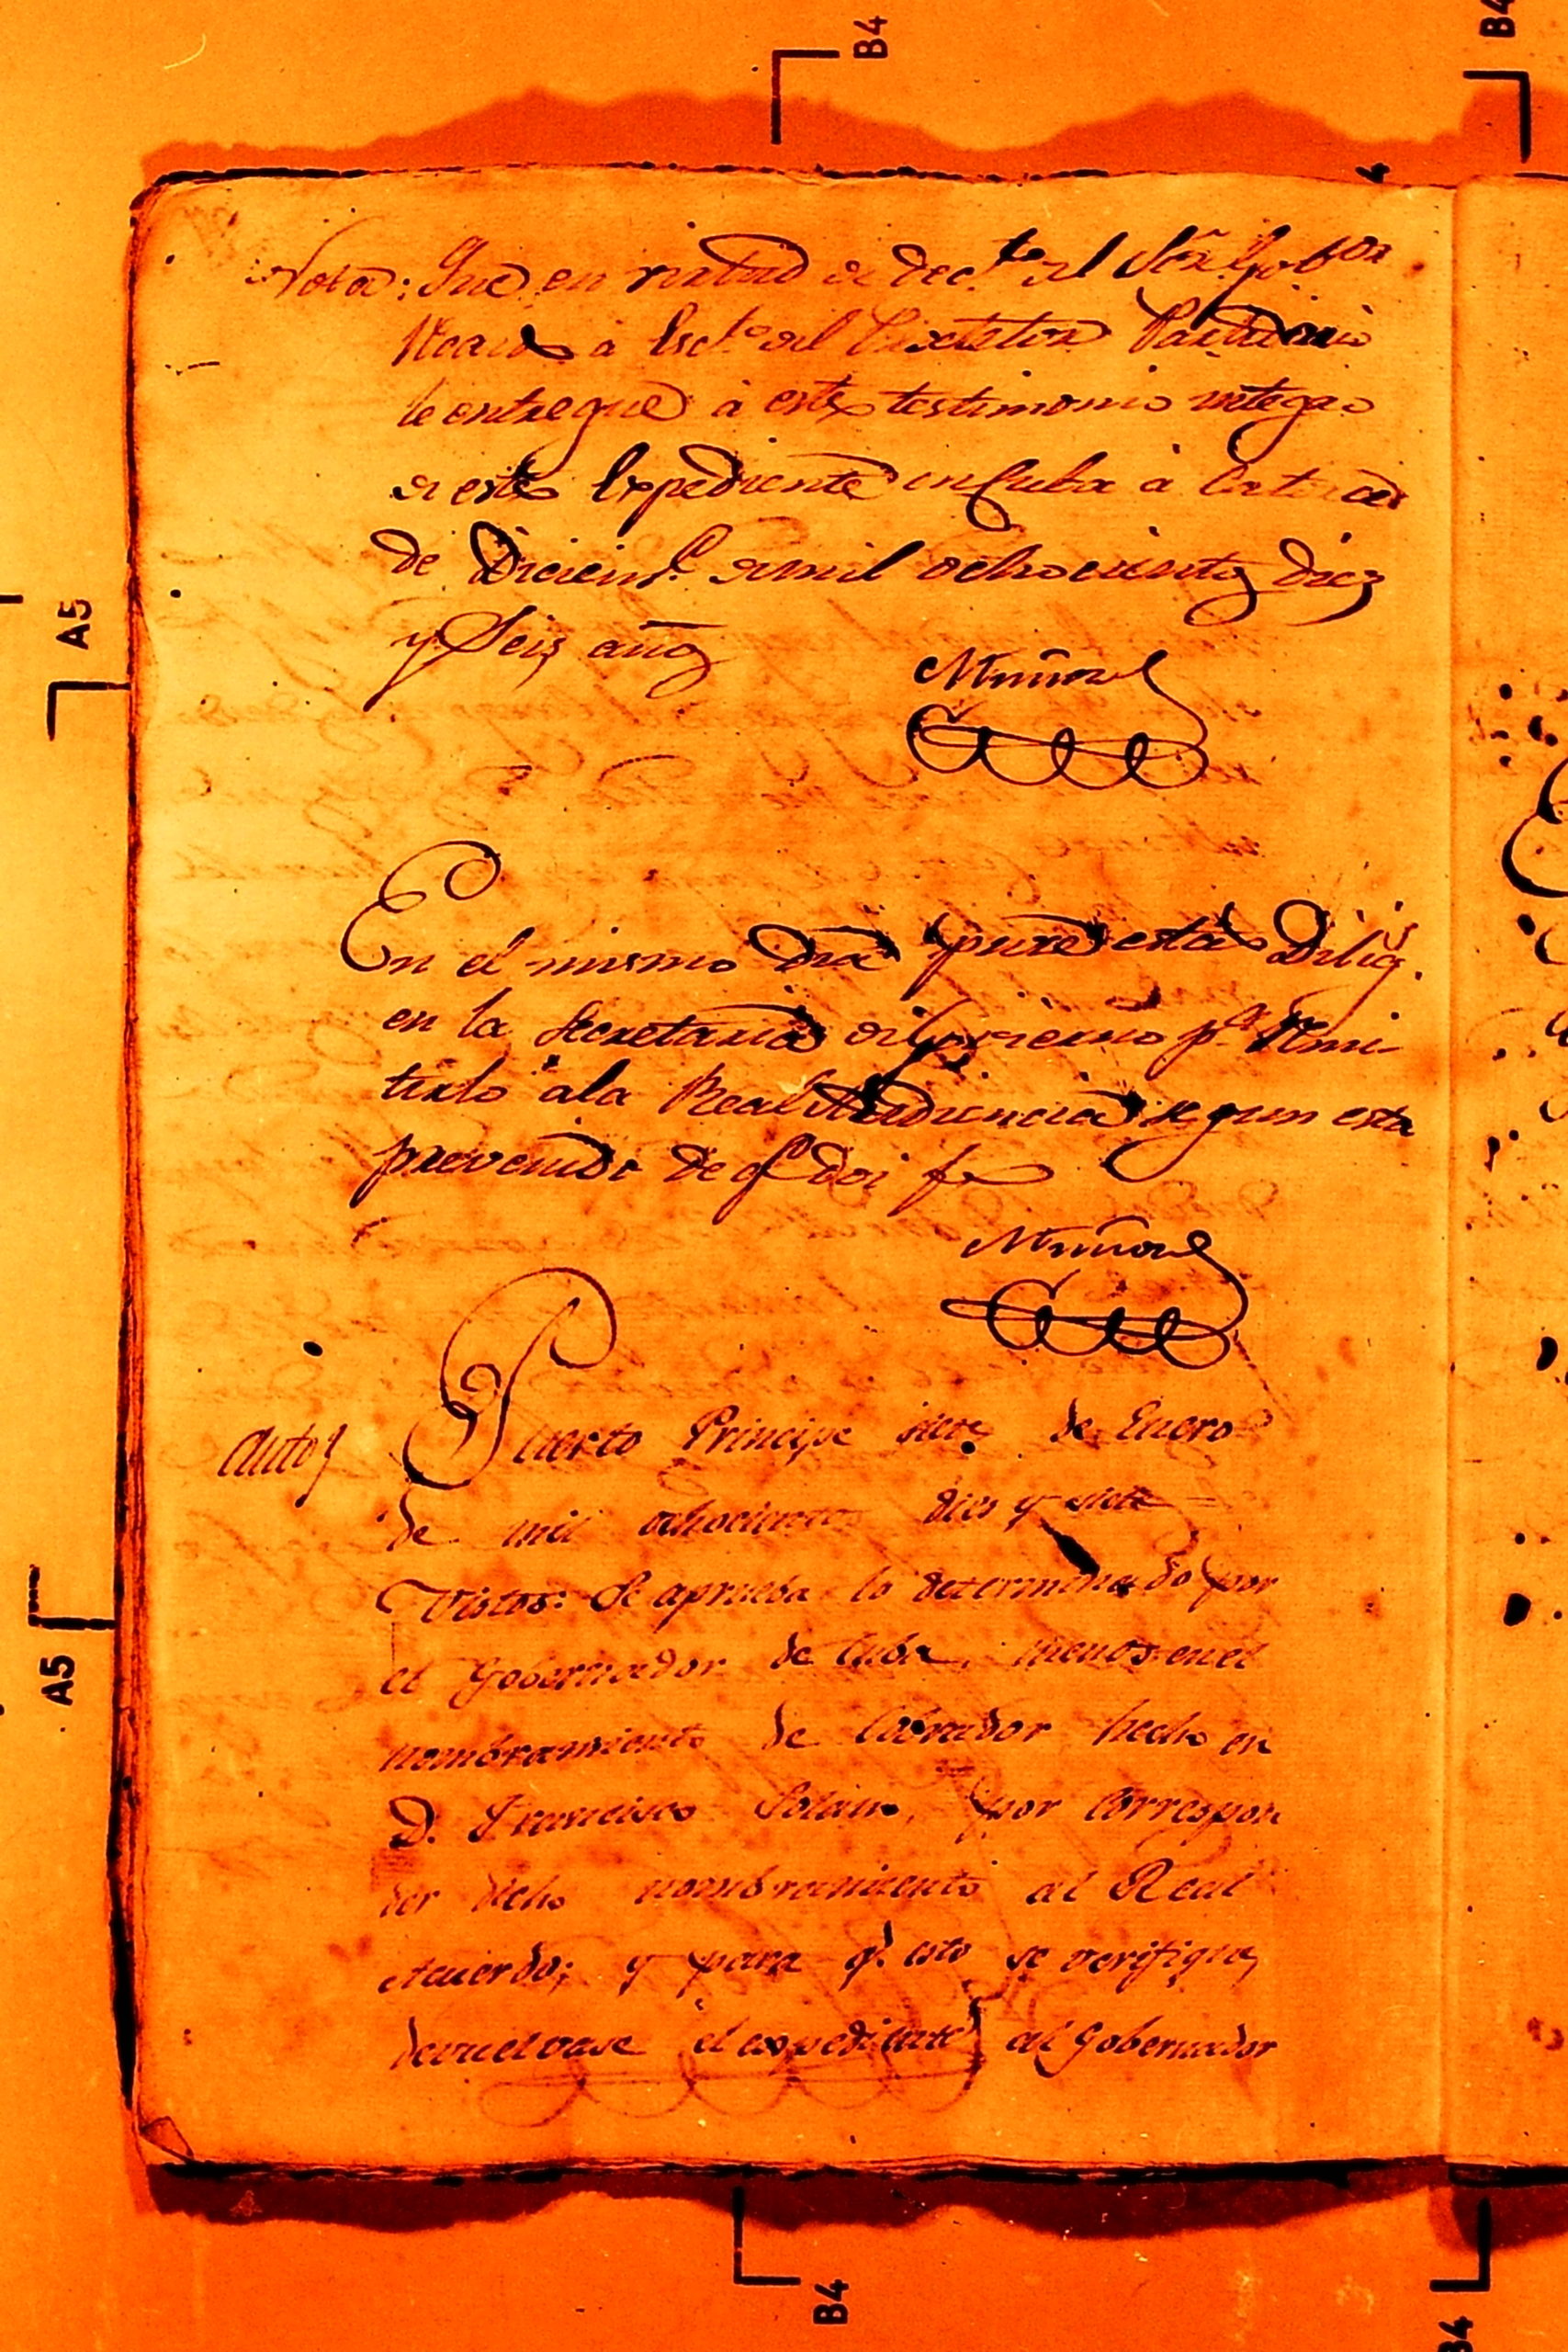 B4
B4
Nota: Que en virtud de dec.to del Sr. Gob.or
a Esc.to del Protetor Partidario
le entregué à este testimonio integro
de este Expediente en Cuba à Catorce
de Diciem.e de mil ochocientos diez
y Seis años
Muñoz
En el mismo dia puse estas Dilig.s
en la Secretaria de Govierno p.a Remi-
tirlo ala Real Audiencia segun esta
prevenido de q.e doi fe
Muñoz
Autos
Puerto Principe siete de Enero
de mil ochocientos dies y siete
Vistos: Se aprueba lo determinado por
el Gobernador de Cuba, menos en el
nombramiento de Cobrador hecho en
D. Francisco Solano, por correspon
der dicho nombramiento al Real
Acuerdo; y para q.e esto se verifique,
devuelvase el expediente al Gobernador
A5
A5
B4
B4